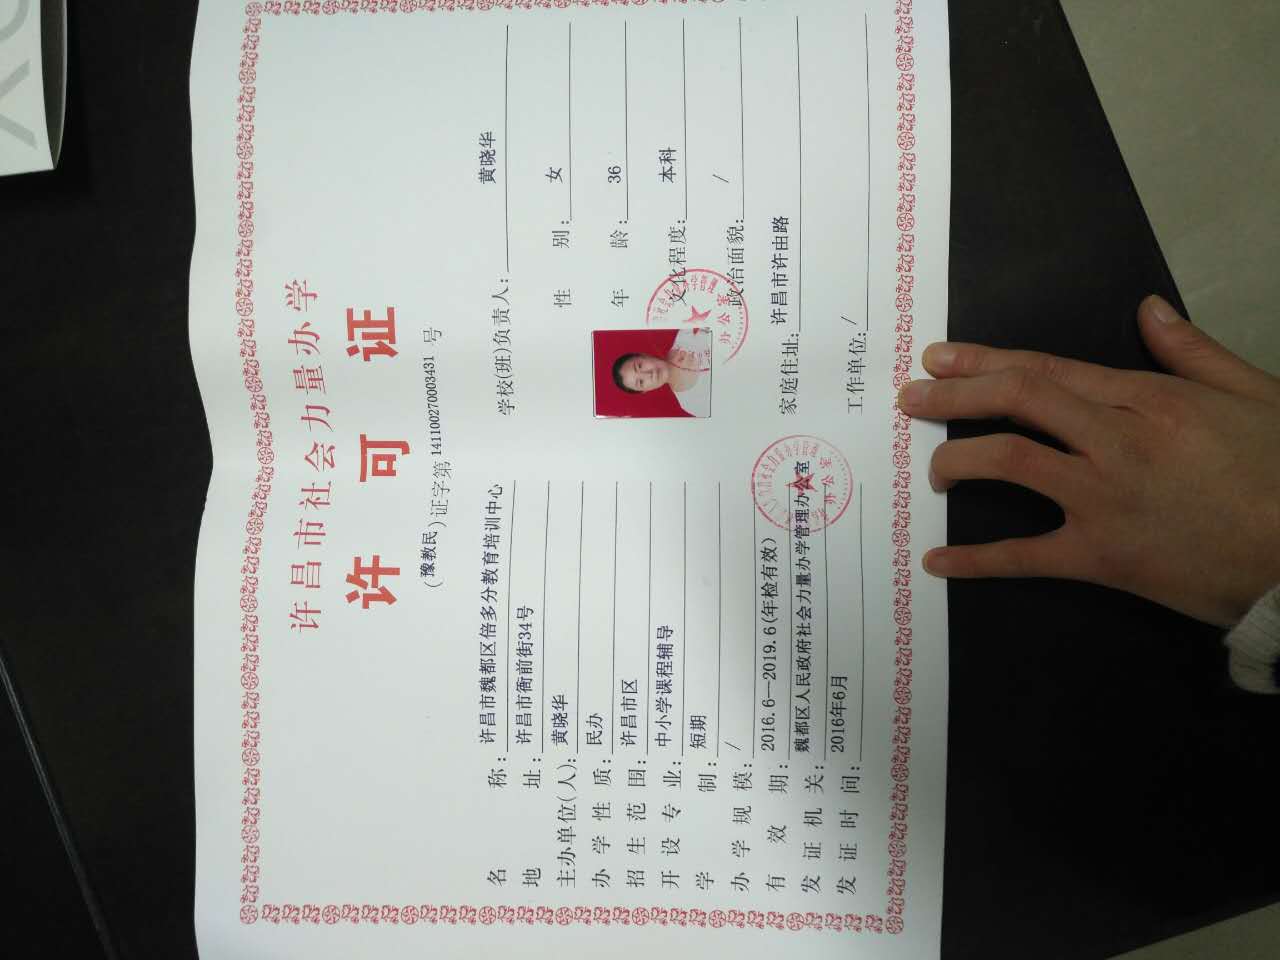 许昌市社会力量办学
许可证
(豫教民)证字第141100270003431号
名称:许昌市魏都区倍多分教育培训中心
地址:许昌市衙前街34号
主办单位(人):黄晓华
办学性质:民办
招生范围:许昌市区
开设专业:中小学课程辅导
学制:短期
办学规模:/
有效期:2016.6—2019.6(年检有效)
发证机关:魏都区人民政府社会力量办学管理办公室
发证时间:2016年6月
学校(班)负责人:黄晓华
性别:女
年龄:36
文化程度:本科
政治面貌:/
家庭住址:许昌市许由路
工作单位:/
办公室
办公室